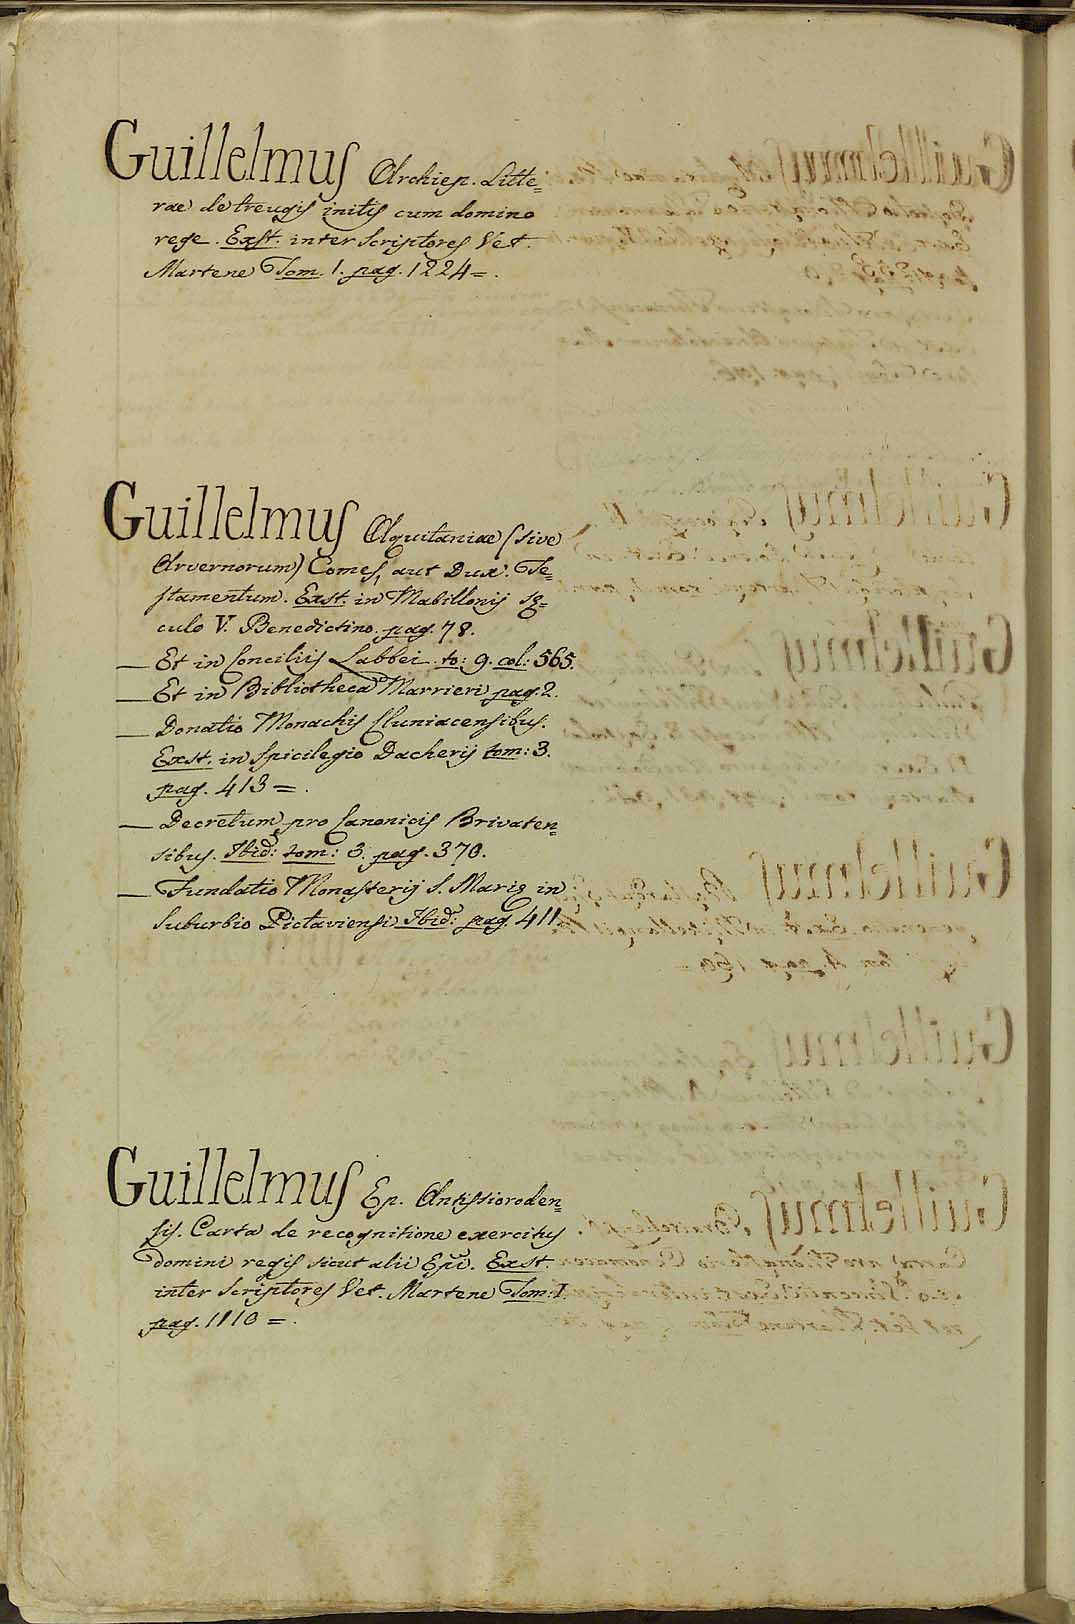 Guillelmus Archiep. Litte=
rae de treugis initis cum domino
rege. Exst. inter Scriptores Vet.
Martene Tom. 1. pag. 1224=.
Guillelmus Aquitaniae (sive
Arvernorum) Comes, aut Dux. Te=
stamentum. Exst. in Mabillonij sę=
culo V. Benedictino. pag. 78.
— Et in Conciliis Labbei to: 9. col: 565.
— Et in Bibliotheca Marrieri pag. 2.
— Donatio Monachis Cluniacensibus.
Exst. in Spicilegio Dacherij tom: 3.
pag. 413=.
— Decretum pro Canonicis Brivaten=
sibus. Ibid: tom: 3. pag. 370.
— Fundatio Monasterij S. Marię in
Suburbio Pictaviensi Ibid: pag. 411.
Guillelmus Ep. Antissioroden=
sis. Carta de recognitione exercitus
Domini regis sicut alii Epi. Exst.
inter Scriptores Vet. Martene Tom: I
pag. 1110=.